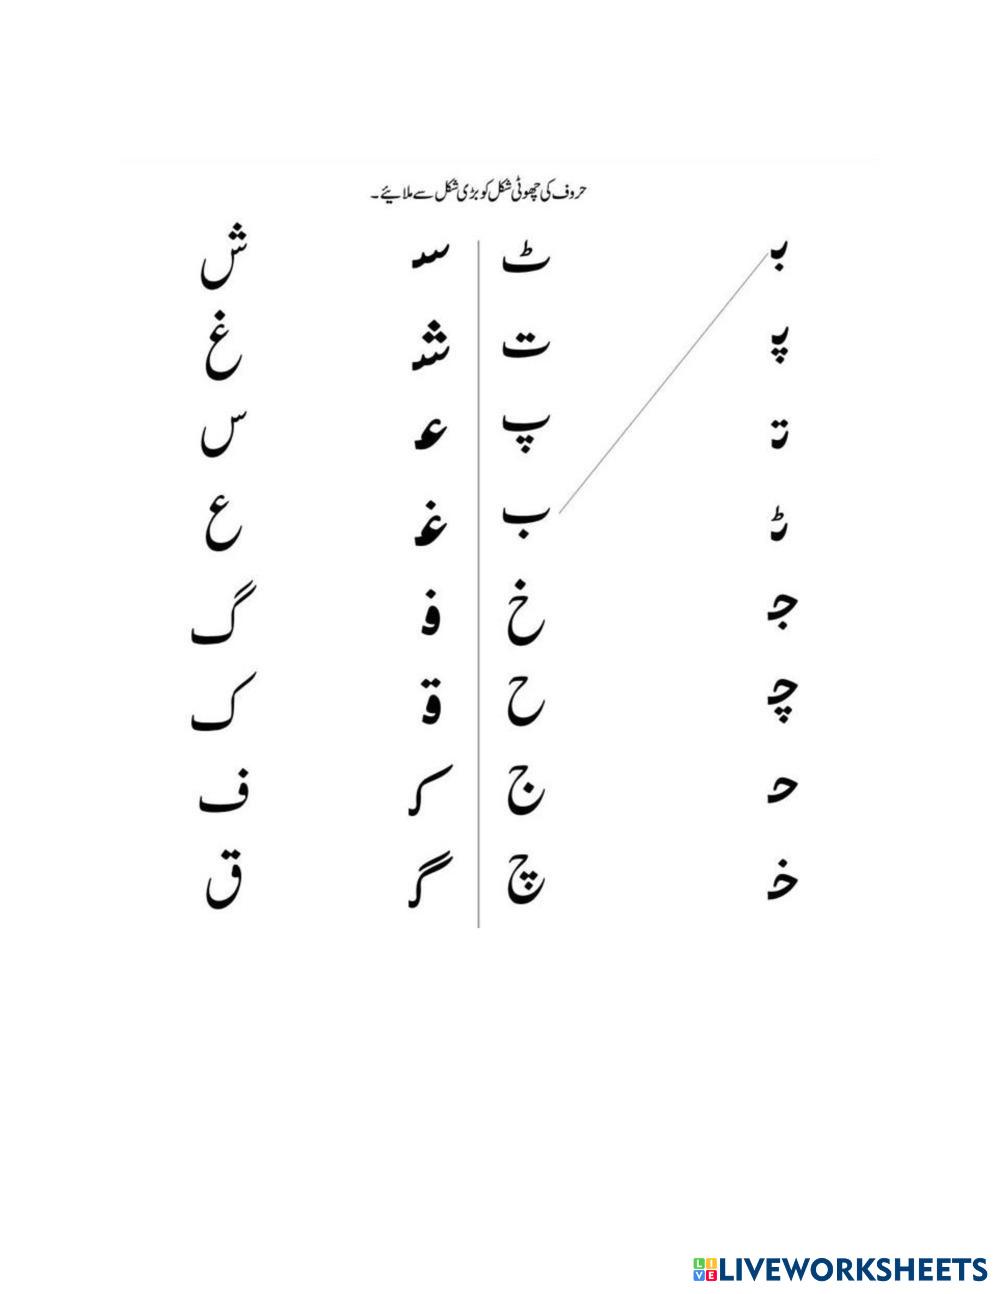 حروف کی چھوٹی شکل کو بڑی شکل سے ملائیے۔
بـ ٹ سـ ش
پـ ت شـ غ
تـ پ عـ س
ٹـ ب غـ ع
جـ خ فـ گ
چـ ح قـ ک
حـ ج کـ ف
خـ چ گـ ق
LIVE LIVEWORKSHEETS